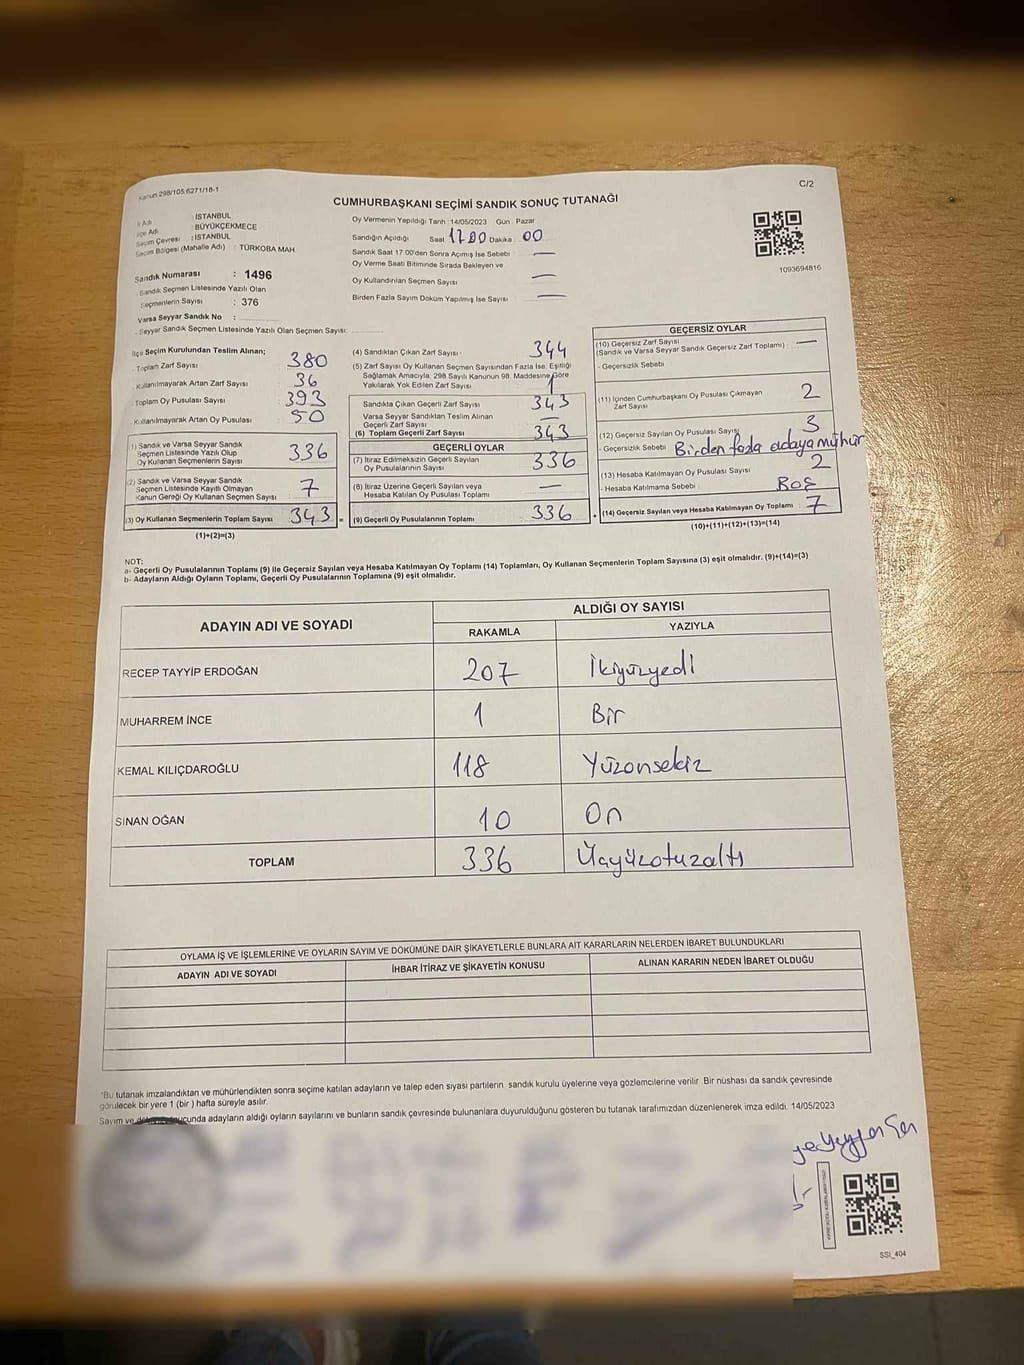 Kanun 298/105 6271/18-1
C/2
CUMHURBAŞKANI SEÇİMİ SANDIK SONUÇ TUTANAĞI
İl Adı : İSTANBUL
İlçe Adı : BÜYÜKÇEKMECE
Seçim Çevresi : İSTANBUL
Seçim Bölgesi (Mahalle Adı) : TÜRKOBA MAH.
Sandık Numarası : 1496
Sandık Seçmen Listesinde Yazılı Olan
Seçmenlerin Sayısı : 376
Varsa Seyyar Sandık No :
- Seyyar Sandık Seçmen Listesinde Yazılı Olan Seçmen Sayısı:
Oy Vermenin Yapıldığı Tarih :14/05/2023 Gün : Pazar
Sandığın Açıldığı Saat 17.00 Dakika : 00
Sandık Saat 17:00'den Sonra Açımış İse Sebebi : —
Oy Verme Saati Bitiminde Sırada Bekleyen ve
Oy Kullandırılan Seçmen Sayısı —
Birden Fazla Sayım Döküm Yapılmış İse Sayısı —
1093694816
İlçe Seçim Kurulundan Teslim Alınan;
Toplam Zarf Sayısı 380
Kullanılmayarak Artan Zarf Sayısı 36
Toplam Oy Pusulası Sayısı 393
Kullanılmayarak Artan Oy Pusulası 50
(1) Sandık ve Varsa Seyyar Sandık
Seçmen Listesinde Yazılı Olup
Oy Kullanan Seçmenlerin Sayısı 336
(2) Sandık ve Varsa Seyyar Sandık
Seçmen Listesinde Kayıtlı Olmayan
Kanun Gereği Oy Kullanan Seçmen Sayısı 7
(3) Oy Kullanan Seçmenlerin Toplam Sayısı 343 =
(1)+(2)=(3)
(4) Sandıktan Çıkan Zarf Sayısı 344
(5) Zarf Sayısı Oy Kullanan Seçmen Sayısından Fazla İse, Eşitliği
Sağlamak Amacıyla; 298 Sayılı Kanunun 98. Maddesine Göre
Yakılarak Yok Edilen Zarf Sayısı 1
Sandıkta Çıkan Geçerli Zarf Sayısı 343
Varsa Seyyar Sandıktan Teslim Alınan
Geçerli Zarf Sayısı —
(6) Toplam Geçerli Zarf Sayısı 343
GEÇERLİ OYLAR
(7) İtiraz Edilmeksizin Geçerli Sayılan
Oy Pusulalarının Sayısı 336
(8) İtiraz Üzerine Geçerli Sayılan veya
Hesaba Katılan Oy Pusulası Toplamı —
(9) Geçerli Oy Pusulalarının Toplamı 336 +
GEÇERSİZ OYLAR
(10) Geçersiz Zarf Sayısı
(Sandık ve Varsa Seyyar Sandık Geçersiz Zarf Toplamı) : —
- Geçersizlik Sebebi
(11) İçinden Cumhurbaşkanı Oy Pusulası Çıkmayan
Zarf Sayısı 2
(12) Geçersiz Sayılan Oy Pusulası Sayısı 3
- Geçersizlik Sebebi Birden fazla adaya mühür
(13) Hesaba Katılmayan Oy Pusulası Sayısı 2
- Hesaba Katılmama Sebebi : Boş
(14) Geçersiz Sayılan veya Hesaba Katılmayan Oy Toplamı : 7
(10)+(11)+(12)+(13)=(14)
NOT:
a- Geçerli Oy Pusulalarının Toplamı (9) ile Geçersiz Sayılan veya Hesaba Katılmayan Oy Toplamı (14) Toplamları, Oy Kullanan Seçmenlerin Toplam Sayısına (3) eşit olmalıdır. (9)+(14)=(3)
b- Adayların Aldığı Oyların Toplamı, Geçerli Oy Pusulalarının Toplamına (9) eşit olmalıdır.
ADAYIN ADI VE SOYADI ALDIĞI OY SAYISI
RAKAMLA YAZIYLA
RECEP TAYYİP ERDOĞAN 207 İkiyüzyedi
MUHARREM İNCE 1 Bir
KEMAL KILIÇDAROĞLU 118 Yüzonsekiz
SİNAN OĞAN 10 On
TOPLAM 336 Üçyüzotuzaltı
OYLAMA İŞ VE İŞLEMLERİNE VE OYLARIN SAYIM VE DÖKÜMÜNE DAİR ŞİKAYETLERLE BUNLARA AİT KARARLARIN NELERDEN İBARET BULUNDUKLARI
ADAYIN ADI VE SOYADI İHBAR İTİRAZ VE ŞİKAYETİN KONUSU ALINAN KARARIN NEDEN İBARET OLDUĞU
*Bu tutanak imzalandıktan ve mühürlendikten sonra seçime katılan adayların ve talep eden siyasi partilerin sandık kurulu üyelerine veya gözlemcilerine verilir. Bir nüshası da sandık çevresinde
görülecek bir yere 1 (bir ) hafta süreyle asılır.
Sayım ve sonucunda adayların aldığı oyların sayılarını ve bunların sandık çevresinde bulunanlara duyurulduğunu gösteren bu tutanak tarafımızdan düzenlenerek imza edildi. 14/05/2023
SSI_404